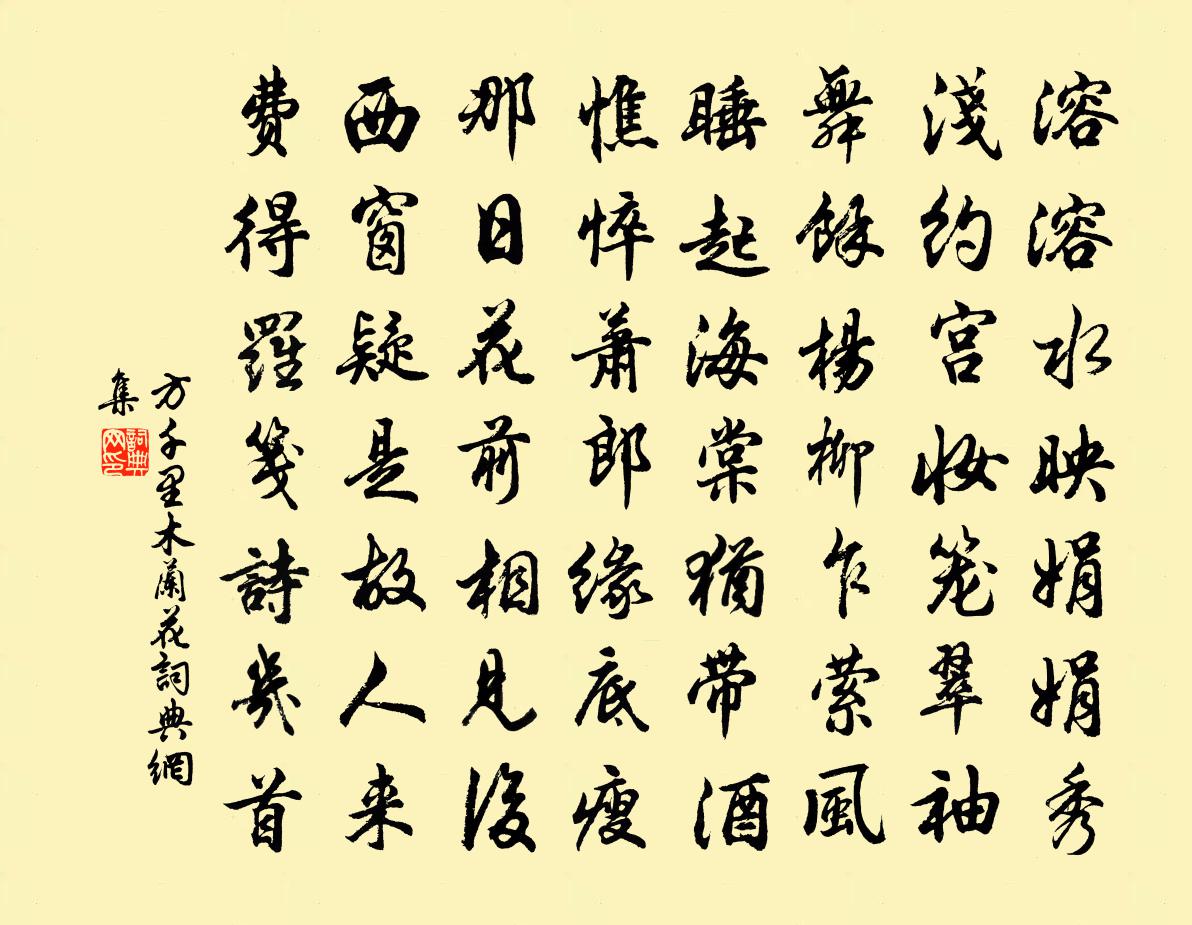 溶溶水映娟娟秀
淺約宮妝笼翠袖
舞餘楊柳乍萦風
睡起海棠猶带酒
憔悴萧郎缘底瘦
那日花前相見後
西窗疑是故人来
费得羅箋詩幾首
方千里木蘭花詞典網
集
詞典
网印